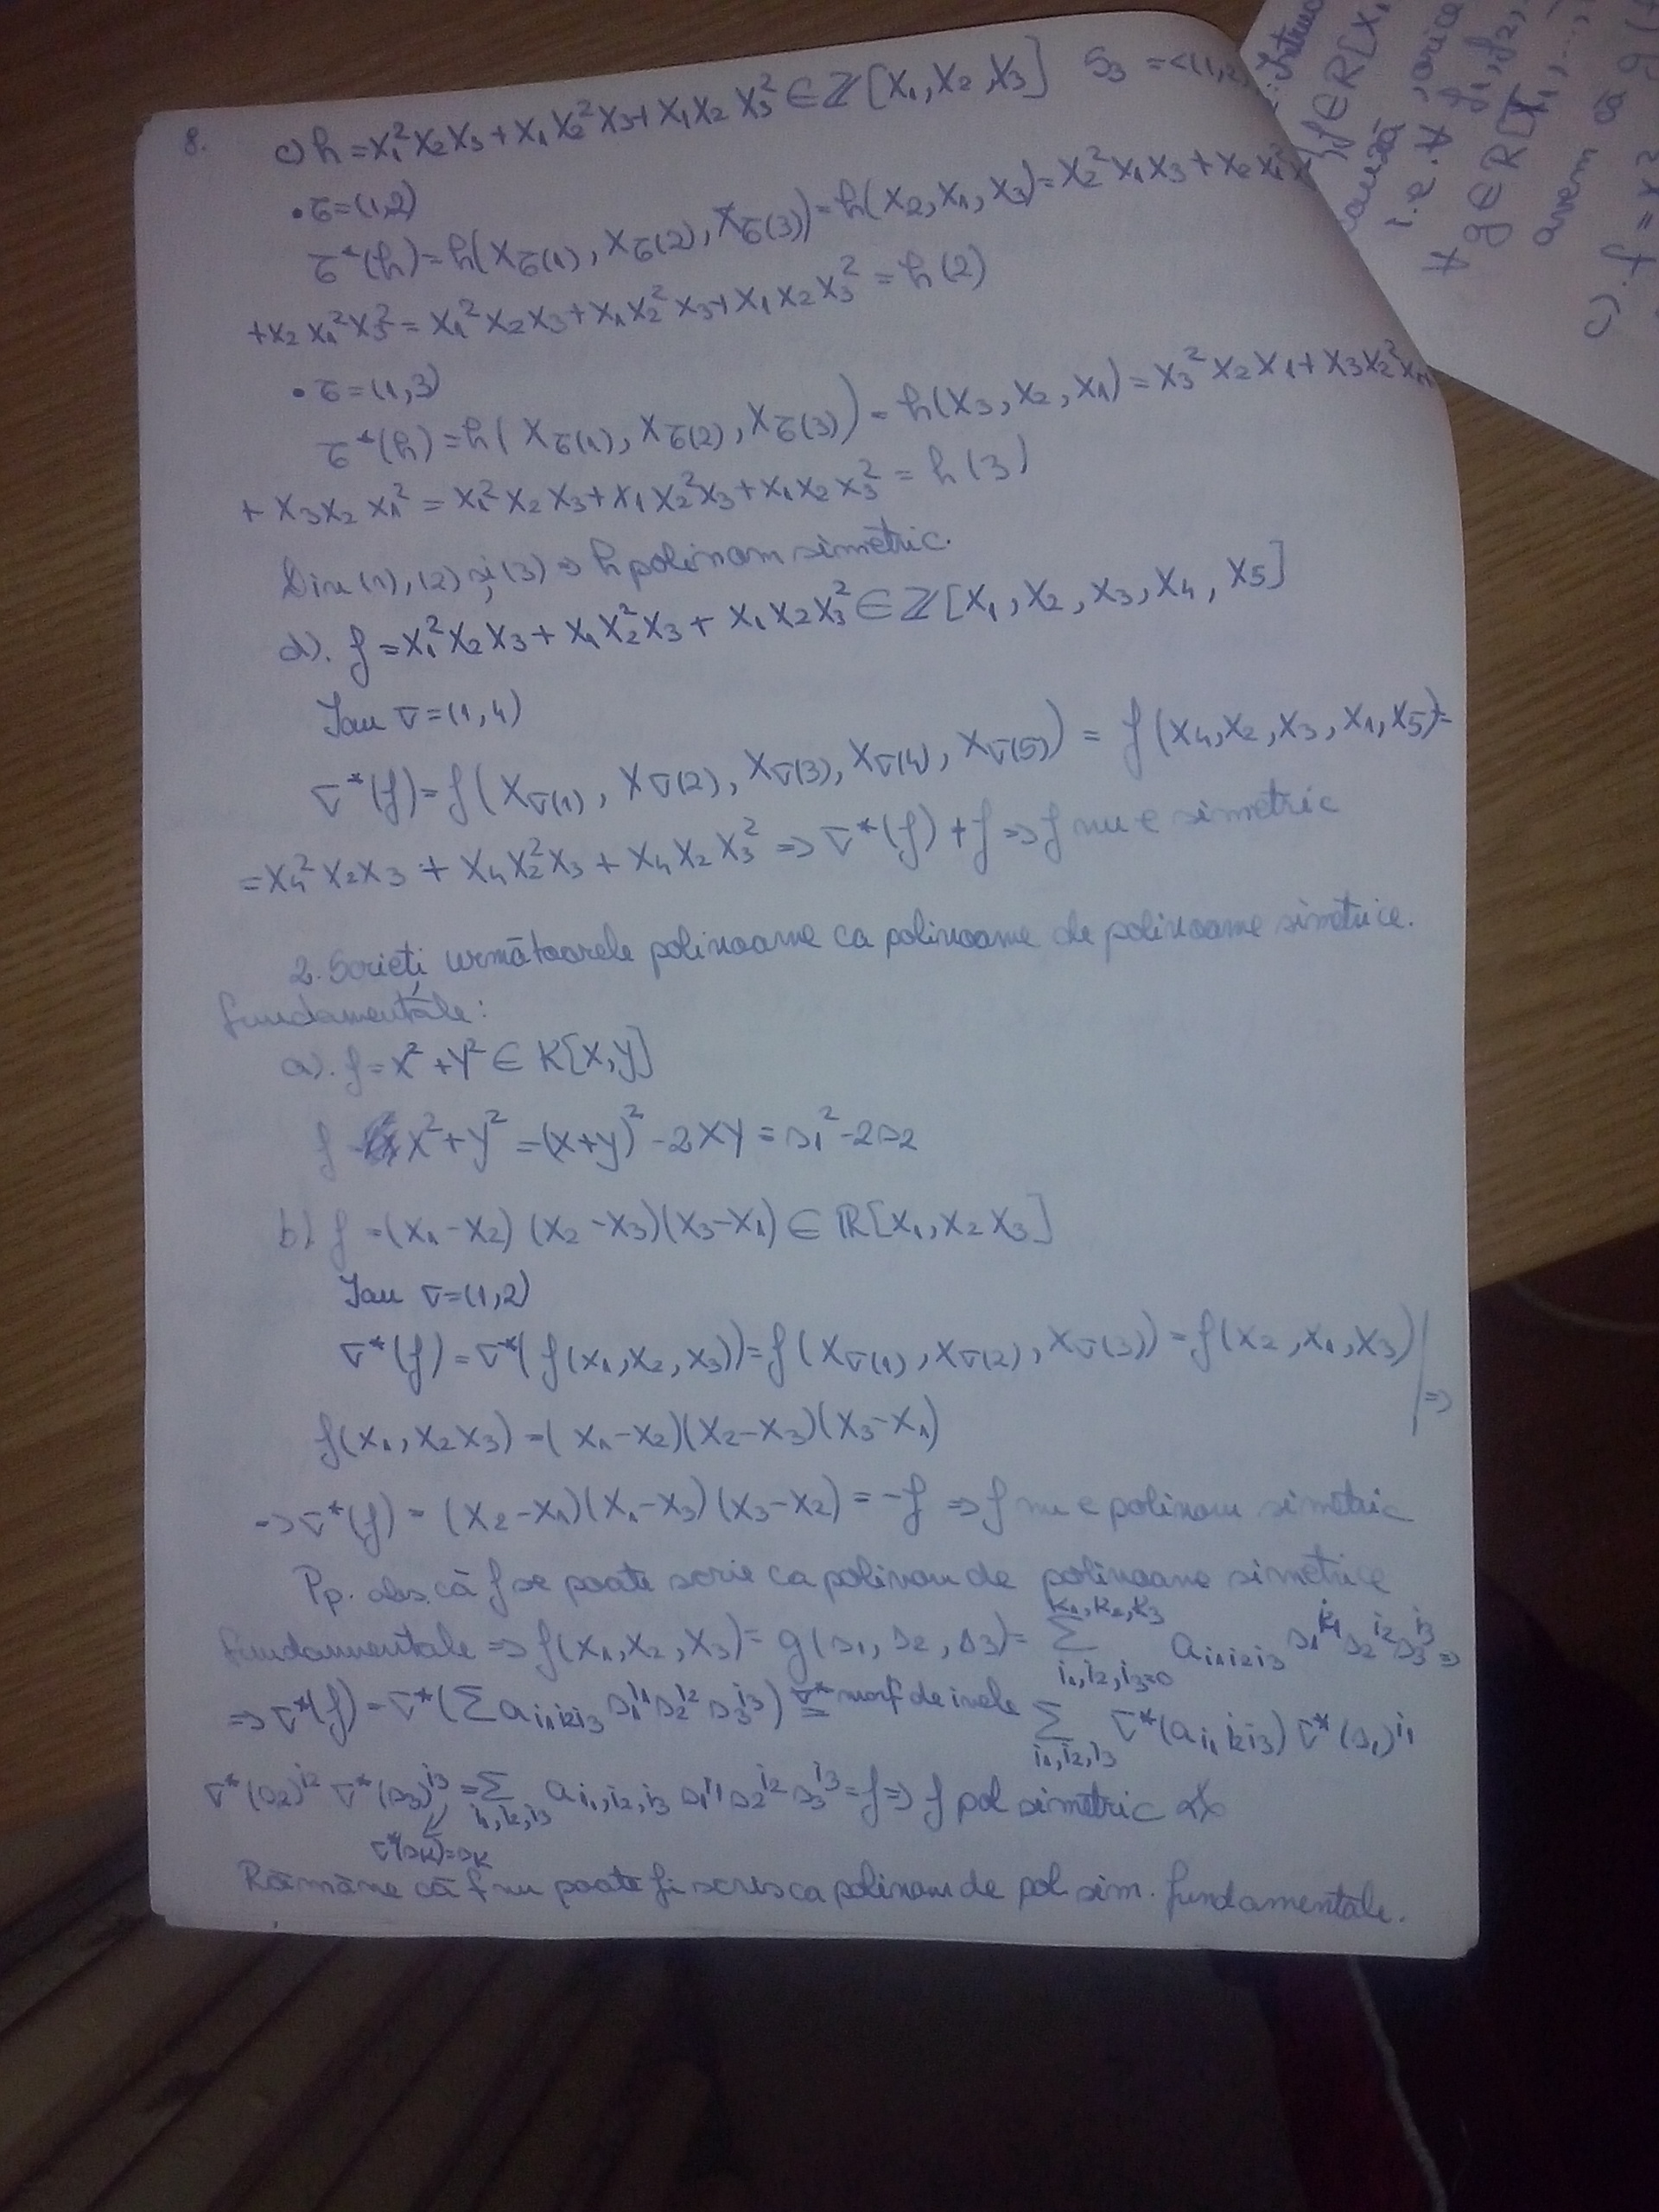 8. c) h = x₁²x₂x₃ + x₁x₂²x₃ + x₁x₂x₃² ∈ ℤ[x₁, x₂, x₃] S₃ = <(1,2)
• τ = (1,2)
τ*(h) = h(x_τ(1), x_τ(2), x_τ(3)) = h(x₂, x₁, x₃) = x₂²x₁x₃ + x₂x₁²x
+ x₂x₁²x₃² = x₁²x₂x₃ + x₁x₂²x₃ + x₁x₂x₃² = h (2)
• τ = (1,3)
τ*(h) = h(x_τ(1), x_τ(2), x_τ(3)) = h(x₃, x₂, x₁) = x₃²x₂x₁ + x₃x₂²x₁
+ x₃x₂x₁² = x₁²x₂x₃ + x₁x₂²x₃ + x₁x₂x₃² = h (3)
Din (1), (2) și (3) ⇒ h polinom simetric.
d). f = x₁²x₂x₃ + x₁x₂²x₃ + x₁x₂x₃² ∈ ℤ[x₁, x₂, x₃, x₄, x₅]
Iau σ = (1,4)
σ*(f) = f(x_σ(1), x_σ(2), x_σ(3), x_σ(4), x_σ(5)) = f(x₄, x₂, x₃, x₁, x₅) =
= x₄²x₂x₃ + x₄x₂²x₃ + x₄x₂x₃² ⇒ σ*(f) ≠ f ⇒ f nu e simetric
2. Scrieți următoarele polinoame ca polinoame de polinoame simetrice.
fundamentale:
a). f = x² + y² ∈ K[x, y]
f = x² + y² = (x+y)² - 2xy = s₁² - 2s₂
b) f = (x₁ - x₂)(x₂ - x₃)(x₃ - x₁) ∈ ℝ[x₁, x₂ x₃]
Iau σ = (1,2)
σ*(f) = σ*(f(x₁, x₂, x₃)) = f(x_σ(1), x_σ(2), x_σ(3)) = f(x₂, x₁, x₃) | ⇒
f(x₁, x₂ x₃) = (x₁ - x₂)(x₂ - x₃)(x₃ - x₁)
⇒ σ*(f) = (x₂ - x₁)(x₁ - x₃)(x₃ - x₂) = -f ⇒ f nu e polinom simetric
Pp. abs. că f se poate scrie ca polinom de polinoame simetrice
fundamentale ⇒ f(x₁, x₂, x₃) = g(s₁, s₂, s₃) = Σ_{i₁,i₂,i₃=0}^{k₁,k₂,k₃} a_{i₁i₂i₃} s₁^{i₁} s₂^{i₂} s₃^{i₃} ⇒
⇒ σ*(f) = σ*(Σ a_{i₁i₂i₃} s₁^{i₁} s₂^{i₂} s₃^{i₃}) = σ* morf de inele Σ_{i₁,i₂,i₃} σ*(a_{i₁i₂i₃}) σ*(s₁)^{i₁}
σ*(s₂)^{i₂} σ*(s₃)^{i₃} = Σ_{i₁,i₂,i₃} a_{i₁,i₂,i₃} s₁^{i₁} s₂^{i₂} s₃^{i₃} = f ⇒ f pol simetric
σ*(s_k) = s_k
Rămâne că f nu poate fi scris ca polinom de pol sim. fundamentale.
f ∈ R[x₁
i.e. ∀ g₁, g₂,
∀ g ∈ R[x₁, ...,
avem că g (
c). f = x²